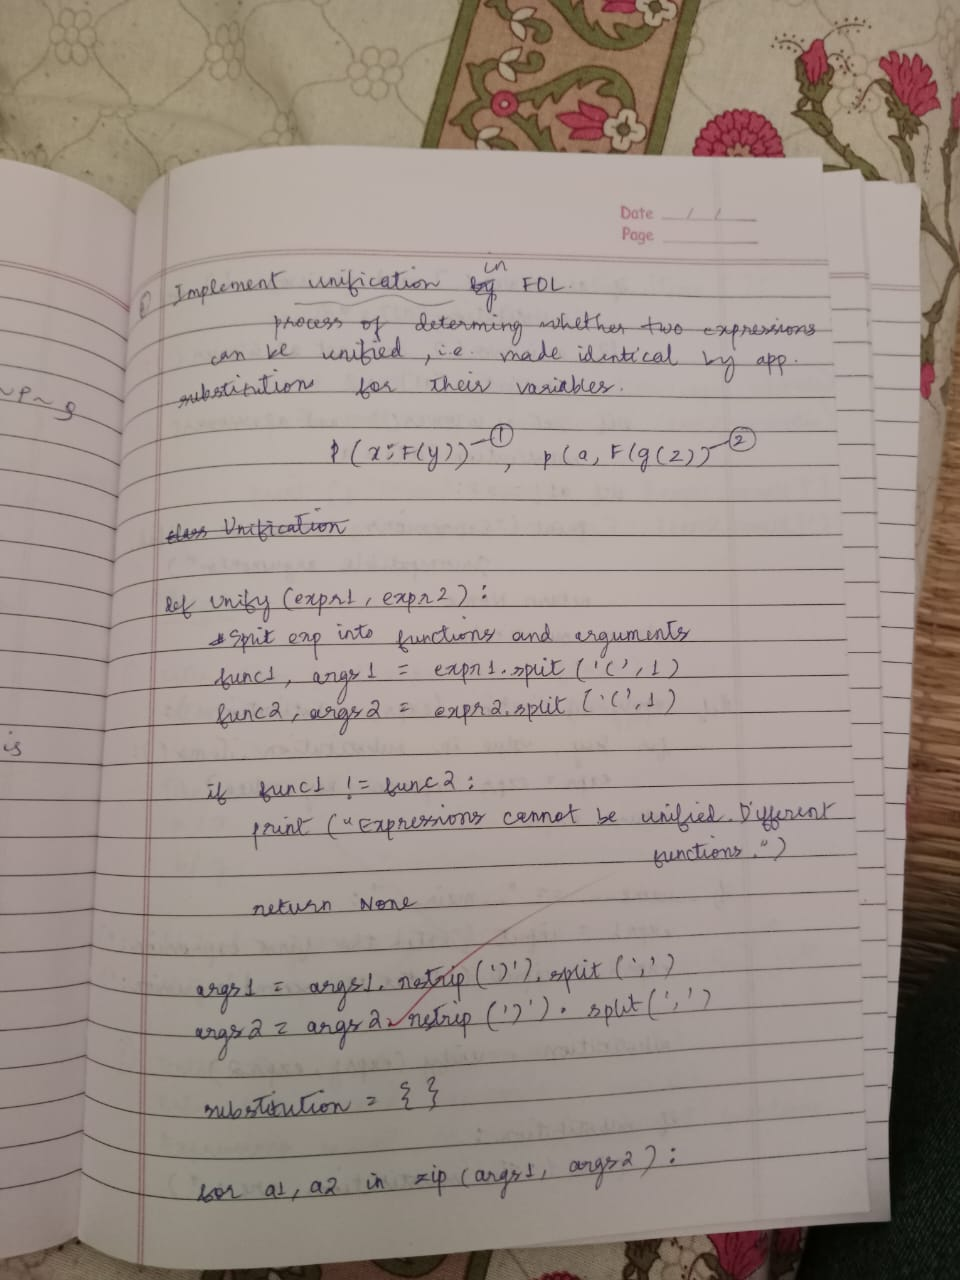 Date / /
Page
6) Implement unification by in FOL.
process of determing whether two expressions
can be unified, i.e. made identical by app.
substitution for their variables.
~p~g
P(x; F(y)) - ①, p(a, F(g(z)) - ②
class Unification
def unify (expr1, expr2):
#Split exp into functions and arguments
func1, args1 = expr1.split('(', 1)
func2, args2 = expr2.split('(', 1)
is
if func1 != func2:
print ("Expressions cannot be unified. Different
functions.")
return None
args1 = args1.rstrip(')').split(',')
args2 = args2.rstrip(')').split(',')
substitution = { }
for a1, a2 in zip(args1, args2):